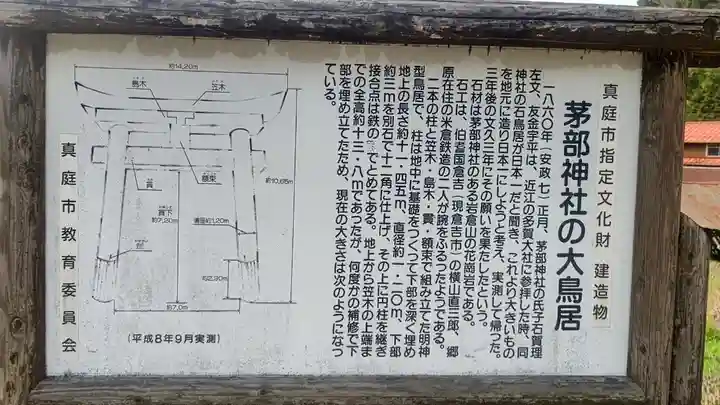 真庭市指定文化財 建造物
茅部神社の大鳥居
一八六〇年(安政七)正月、茅部神社の氏子石賀理
左文、友金宇平は、近江の多賀大社に参拝した時、同
神社の石鳥居が日本一だと聞き、これより大きいもの
を地元に造り日本一にしようと考え、実測して帰った。
三年後の文久三年にその願いを果たしたという。
石材は茅部神社のある岩倉山の花崗岩である。
石工は、伯耆国倉吉(現倉吉市)の横山直三郎、郷
原在住の米倉鉄造の二人が腕をふるったようである。
二本の柱と笠木・島木・貫・額束で組み立てた明神
型鳥居で、柱は地中に基礎をつくって下部を深く埋め
地上の長さ約十一・四五m、直径約一・二〇m、下部
約三mを別石で十二角に仕上げ、その上に円柱を継ぎ
接合点は鉄の でとめてある。地上から笠木の上端ま
での全高約十三・八mであったが、何度かの補修で下
部を埋め立てたため、現在の大きさは次のようになっ
ている。
約14.20m
島木
笠木
額束
貫
貫下
約7.20m
約1.20m
約10.65m
約2.30m
約7.0m
(平成8年9月実測)
真庭市教育委員会